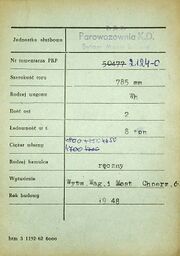 Jednostka służbowa
Parowozownia K.D.
Nr inwentarza PKP 50477 2124-0
Szerokość toru 785 mm
Rodzaj wagonu Wh
Ilość osi 2
Ładowność w t. 8 ton
Ciężar własny
Rodzaj hamulca ręczny
Wytwórnia Wytw.Wag.i Most Chorz.
Rok budowy 1948